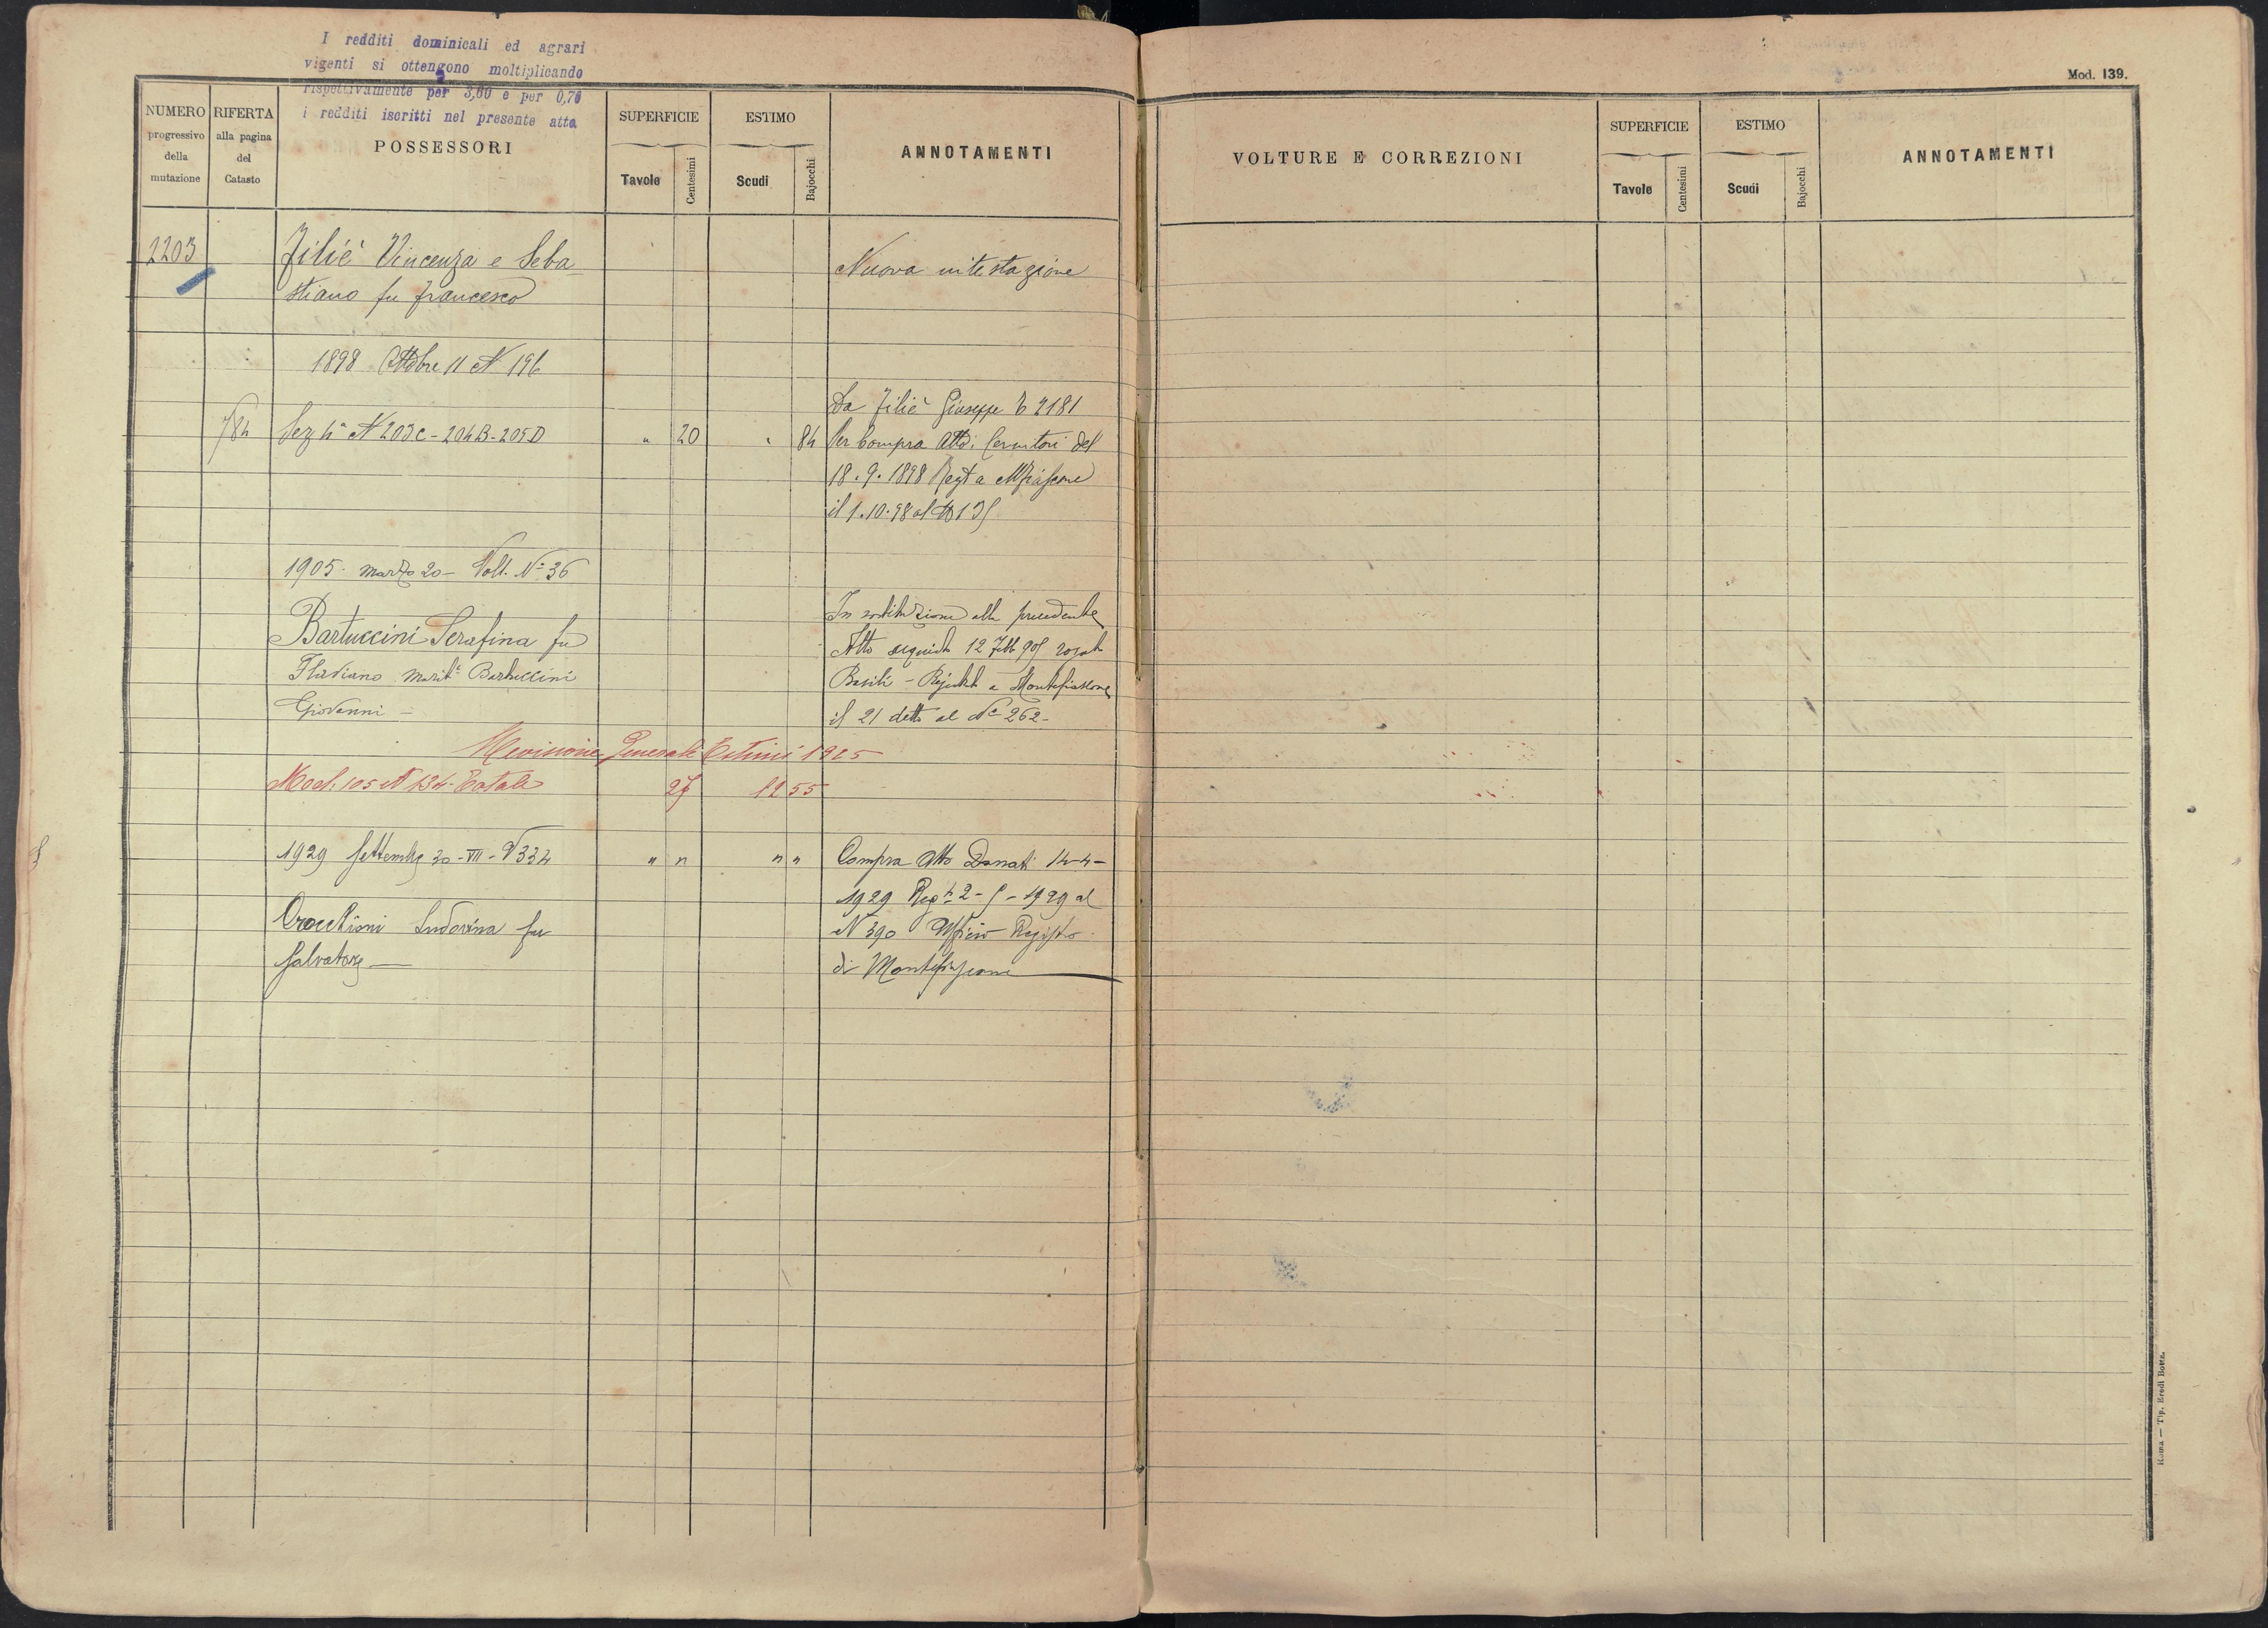 I redditi dominicali ed agrari
vigenti si ottengono moltiplicando
rispettivamente per 3,60 e per 0,70
i redditi iscritti nel presente atto
NUMERO
progressivo
della
mutazione
RIFERTA
alla pagina
del
Catasto
POSSESSORI
SUPERFICIE
Tavole
Centesimi
ESTIMO
Scudi
Bajocchi
ANNOTAMENTI
2203
Filiè Vincenza e Seba
stiano fu Francesco
Nuova intestazione
1898 Ottobre 11 N 196
784
Sez 4ª N 203C - 204B - 205D
" 20
" 84
Da Filiè Giuseppe 2181
Per Compra Atto: del
18.9.1898 Regt a Mfiascone
il 1.10.98 al
1905 - marzo 20 - Volt. Nº 36
Bartuccini Serafina fu
Flaviano Marit. Bartuccini
Giovanni -
In sostituzione alla precedente
Atto seguito 12 Febb 905 rogato
Basili - Regist a Montefiascone
il 21 detto al Nº 262 -
Revisione Generale Estimi 1925
Mod. 105 N 134 - Totale
27
12 55
1929 Settembre 30 - VII - N 334
" "
" "
Compra Atto Donati 14-4-
1929 Regto 2-5-1929 al
N 390 Ufficio Registro
di Montefiascone
Crocchioni Ludovina fu
Salvatore
Mod. 139.
VOLTURE E CORREZIONI
SUPERFICIE
Tavole
Centesimi
ESTIMO
Scudi
Bajocchi
ANNOTAMENTI
Roma — Tip. Eredi Botta.